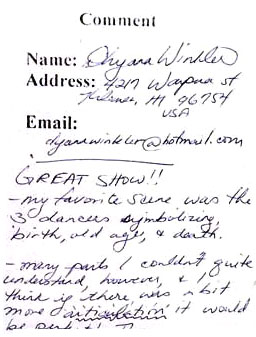 Comment
Name: Dhyana Winkler
Address: 4217 Waipua st
Kilauea, HI 96754
USA
Email:
dyanawinkler@hotmail.com
GREAT SHOW!!
- my favorite scene was the
3 dancers symbolizing
birth, old age, & death.
- many parts I couldn't quite
understand, however, & I
think if there was a bit
more articulation it would
be perfect!